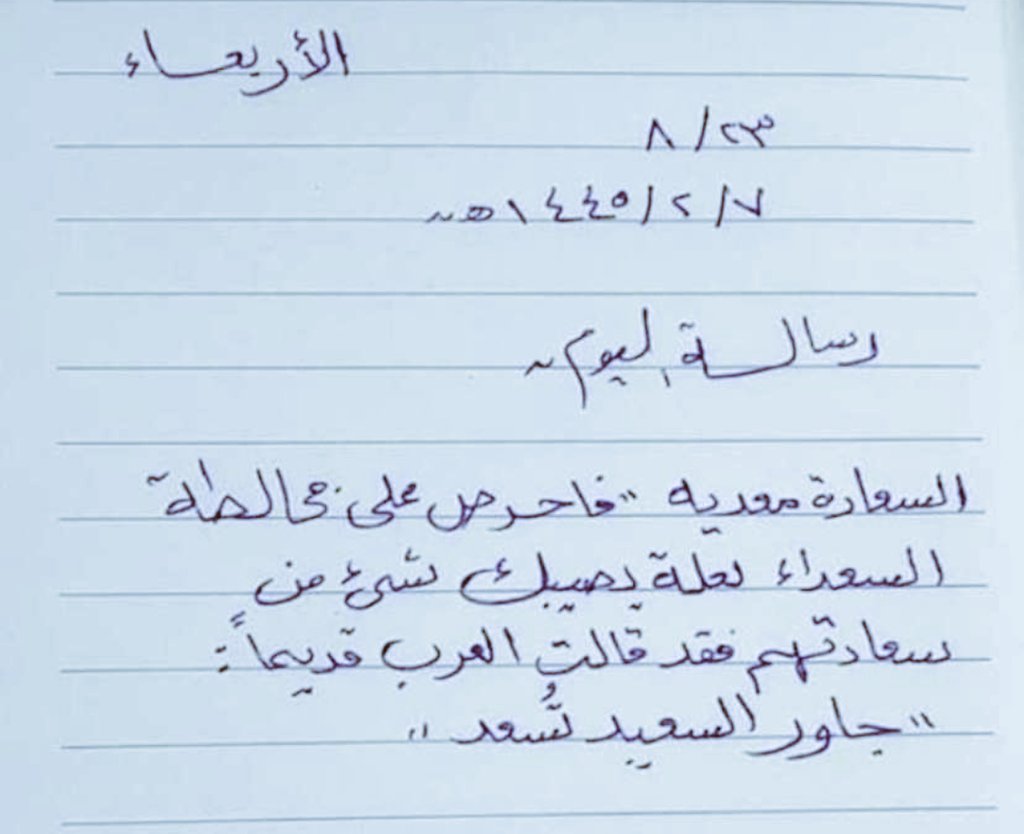 الأربعاء
٢٣/ ٨
٧/ ٢/ ١٤٤٥هـ~
رسالة اليوم~
السعادة معديه ،، فاحرص على مخالطة
السعداء لعلة يصيبك شئ من
سعادتهم فقد قالت العرب قديماً :
"جاور السعيد تُسعد "